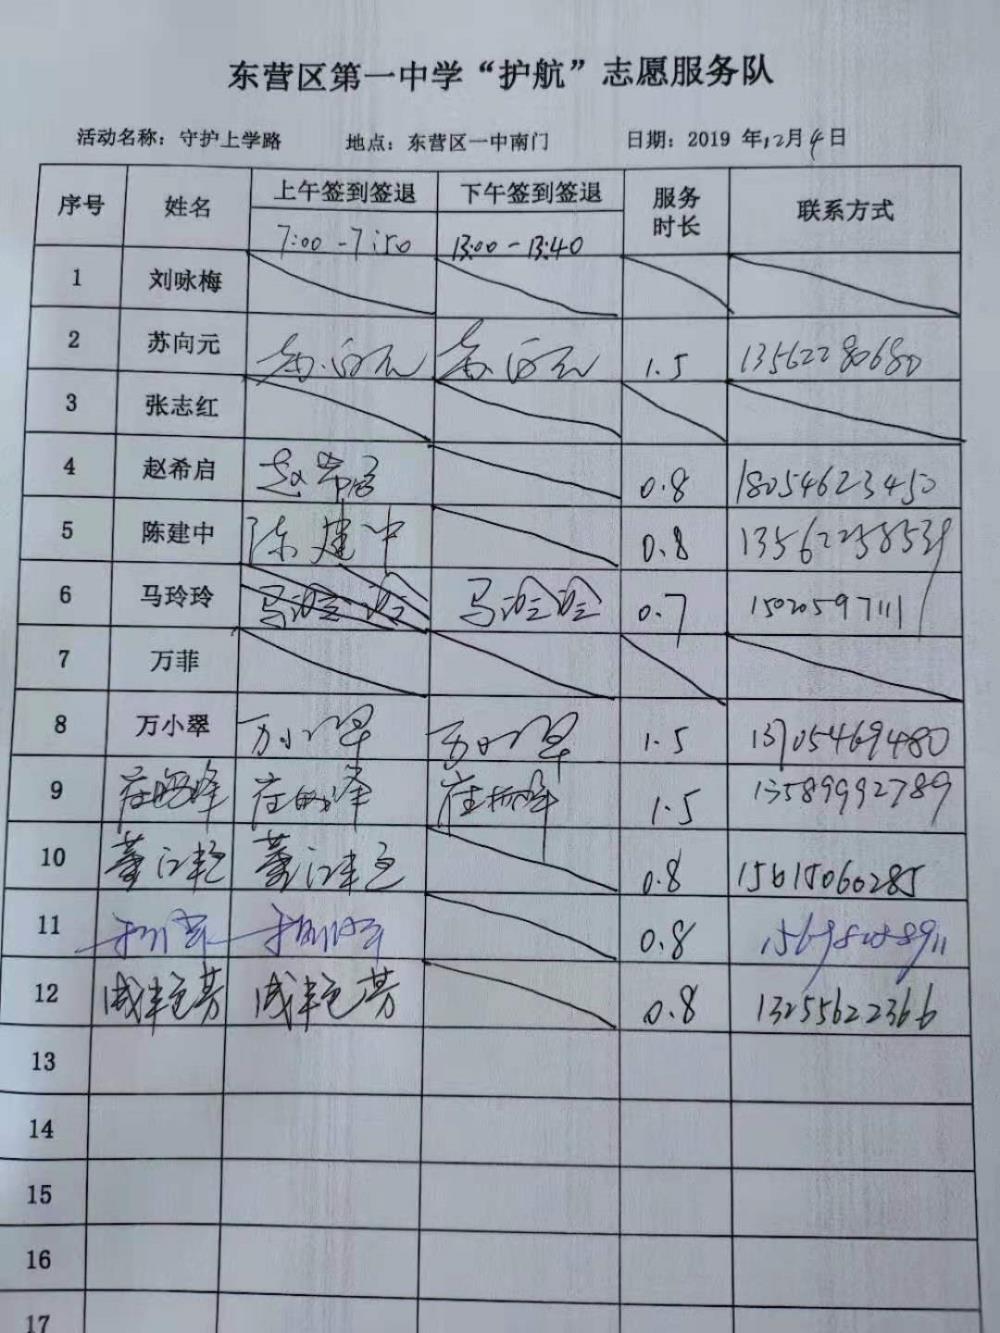 东营区第一中学“护航”志愿服务队
活动名称：守护上学路 地点：东营区一中南门 日期：2019 年12月4日
序号 姓名 上午签到签退 下午签到签退 服务时长 联系方式
7:00-7:50 13:00-13:40
1 刘咏梅
2 苏向元 苏向元 苏向元 1.5 13562280680
3 张志红
4 赵希启 赵希启 0.8 18054623450
5 陈建中 陈建中 0.8 13562258539
6 马玲玲 马玲玲 马玲玲 0.7 15020597111
7 万菲
8 万小翠 万小翠 万小翠 1.5 13705469480
9 1.5 13589992789
10 董江艳 董江艳 0.8 15615060285
11 0.8
12 成艳芳 成艳芳 0.8 13255622366
13
14
15
16
17